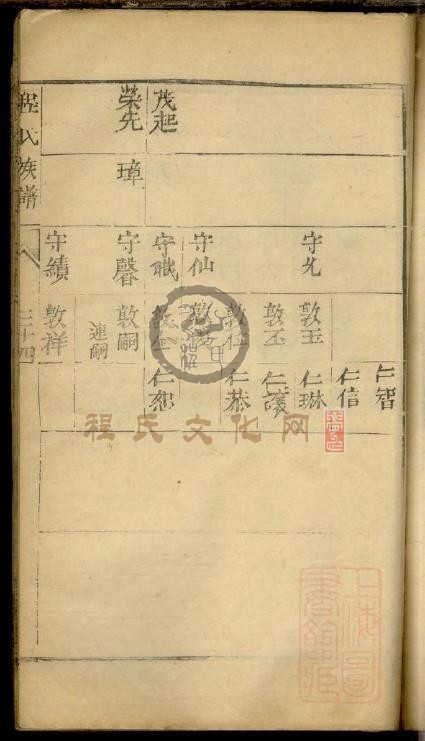 茂起
榮先
璋
守允
守仙
守職
守馨
守績
敦玉
敦丕
敦位
敦嗣
連嗣
敦祥
仁智
仁信
仁琳
仁讓
仁恭
仁恕
程氏族譜
三十四
程氏文化网
上海圖書館藏